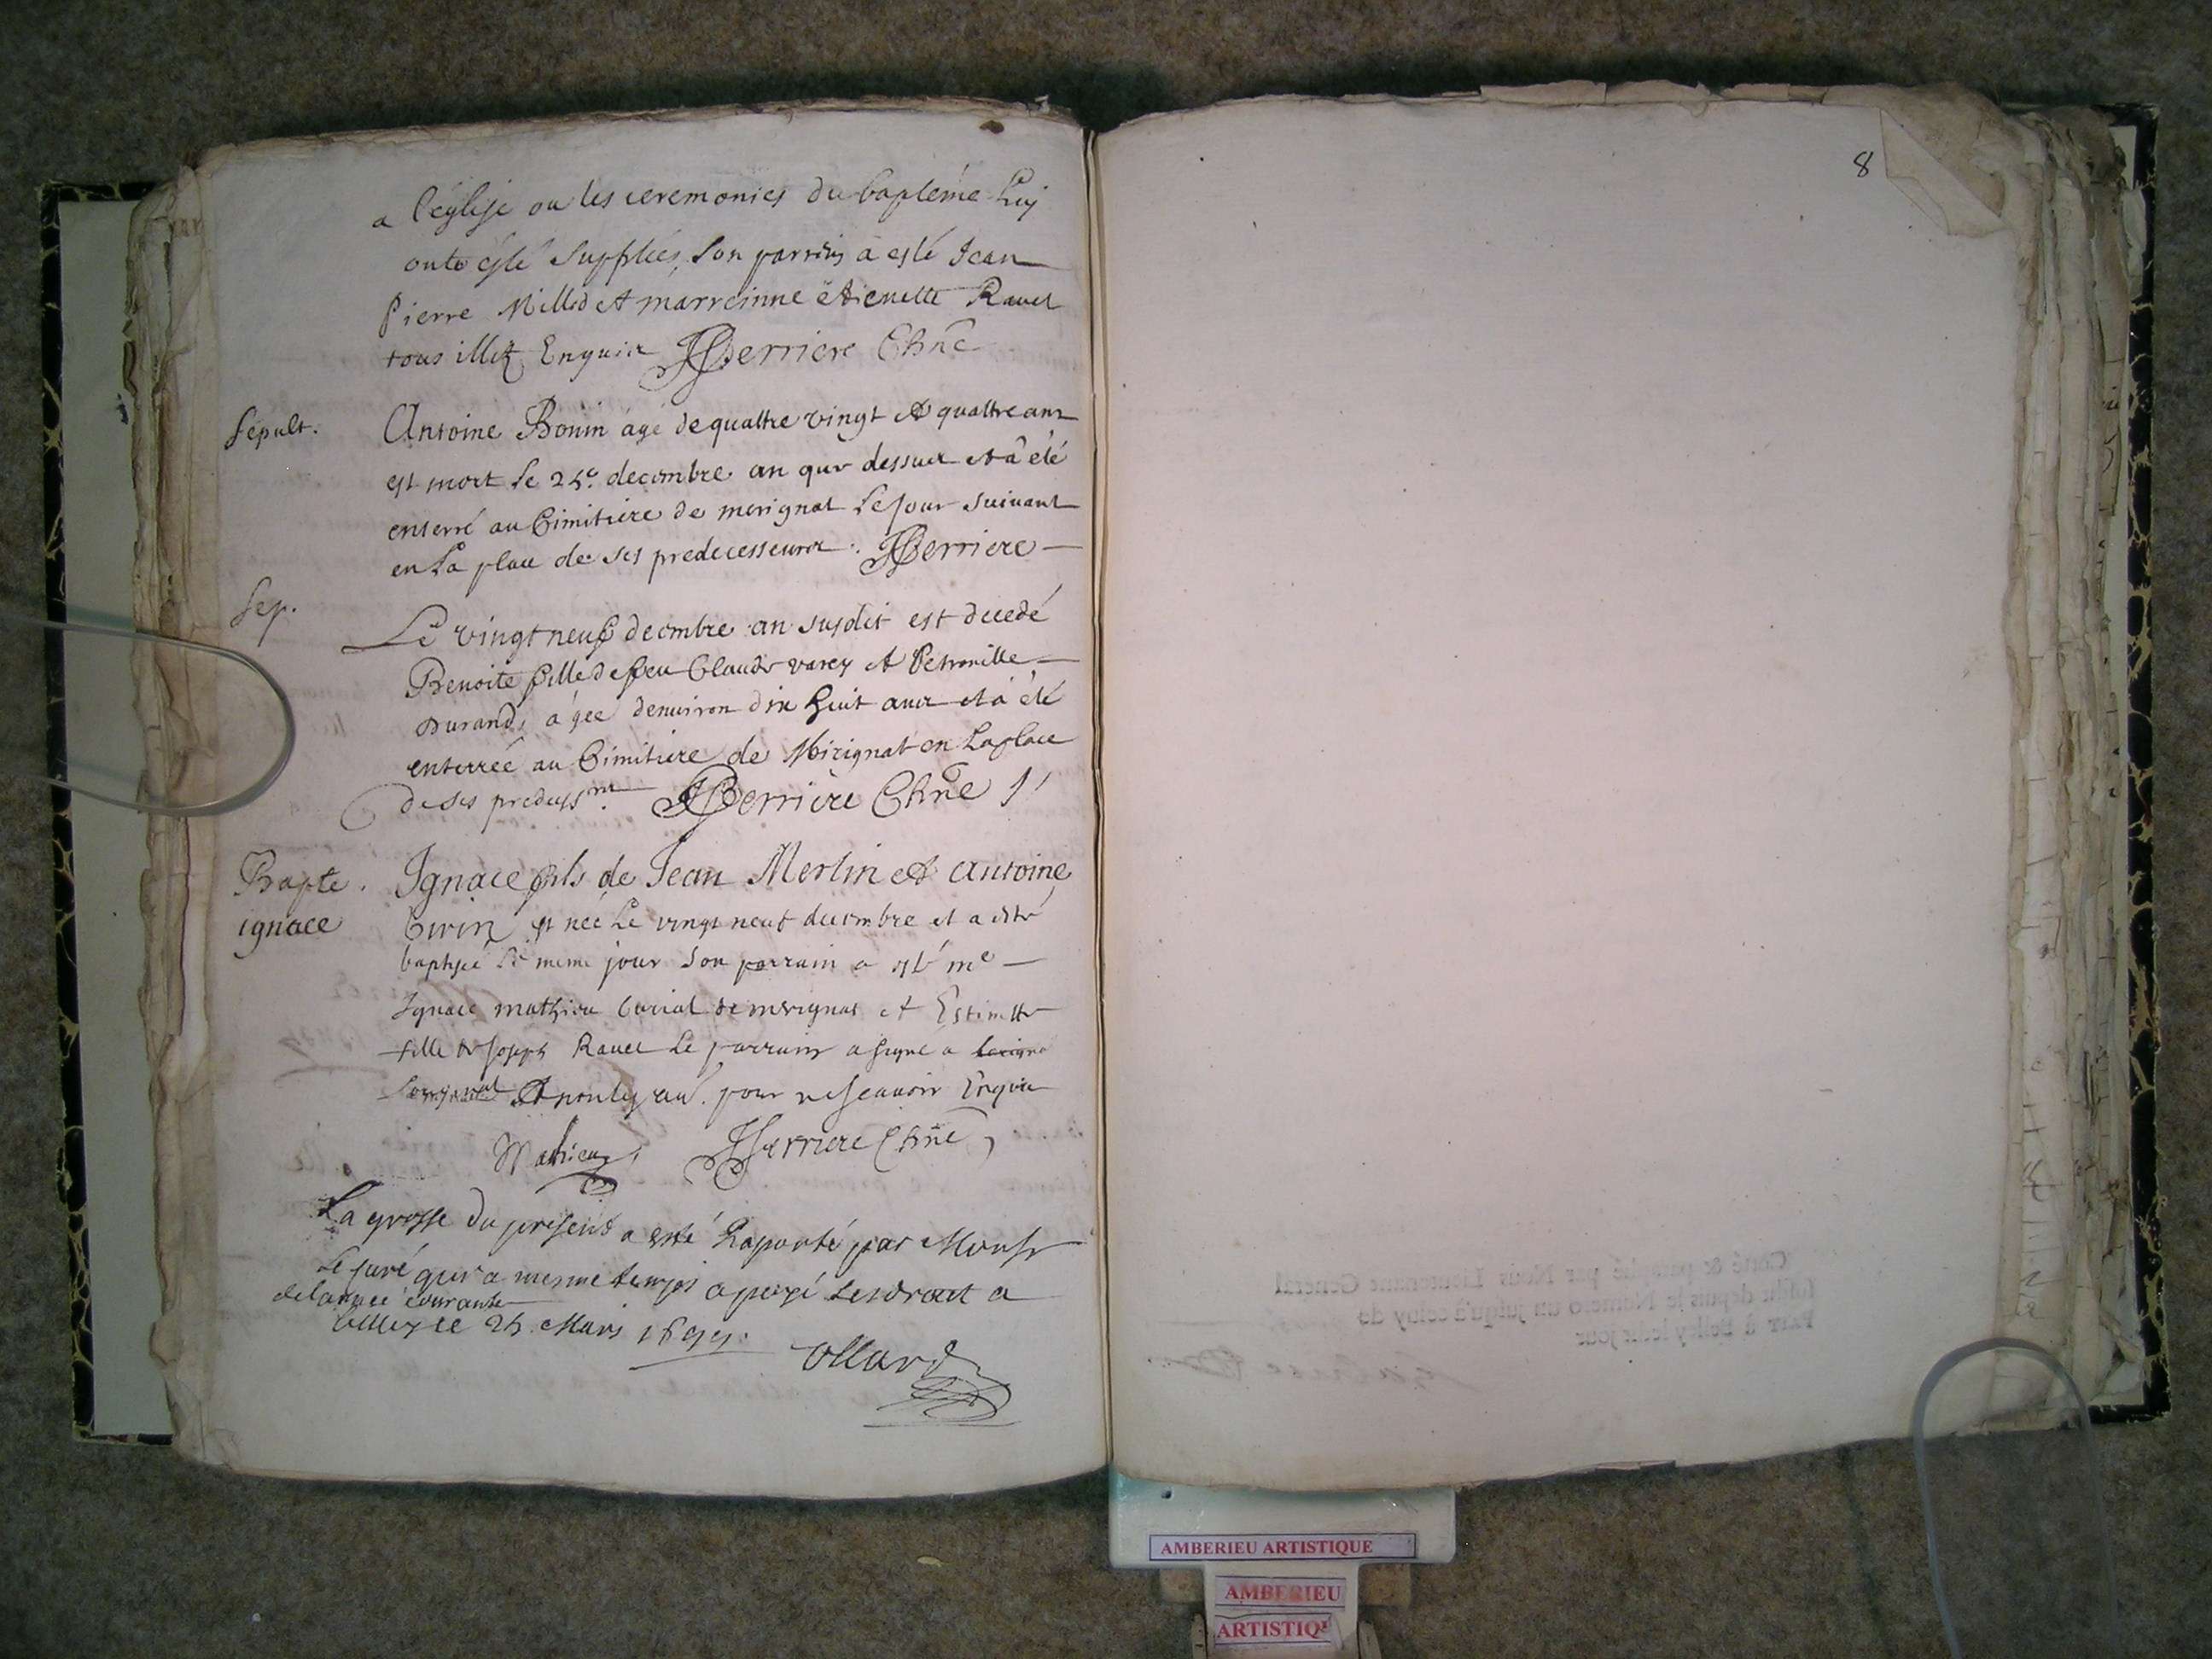 a l'église ou les ceremonies du baptéme Luy
onte esté suppleés, son parrin a esté Jean
Pierre Milled et marreinne étienette Ravet
tous illit Enquis JBerriere Chñe
Sepult.
Antoine Bonin agé de quattre vingt et quattre ans
est mort le 25e. decembre an que dessus et a été
enterré au Cimitiere de merignat le jour suivant
en la place de ses predecesseurs. JBerriere
Sep.
Le vingt neuf decembre an susdit est decedé
Benoite fille de feu Claude varey et Petronille
Durand, agée denviron dix huit ans et a été
enterreé au Cimitiere de Mirignat en la place
de ses JBerriere Chñe
Bapte. ignace
Ignace fils de Jean Merlin et antoine
est neé le vingt neuf decembre et a esté
baptiseé le meme jour son parrain a esté me
Ignace mathieu curial de merignat et
fille de Joseph Ravet le parrain a signé a
pour ne scauoir Enquis
Mathieu JBerriere Chñe
La grosse du present a esté Raporté par Monsr
le curé qui a mesme temps a payé le droit a
de l'année courante
belley ce 25 Mars
ollard
8
Cotté & paraphé par Nous Lieutenant General
susdit depuis le Numero un jusqu'à celuy de
FAIT à Belley ledit jour
AMBERIEU ARTISTIQUE
AMBERIEU
ARTISTIQU